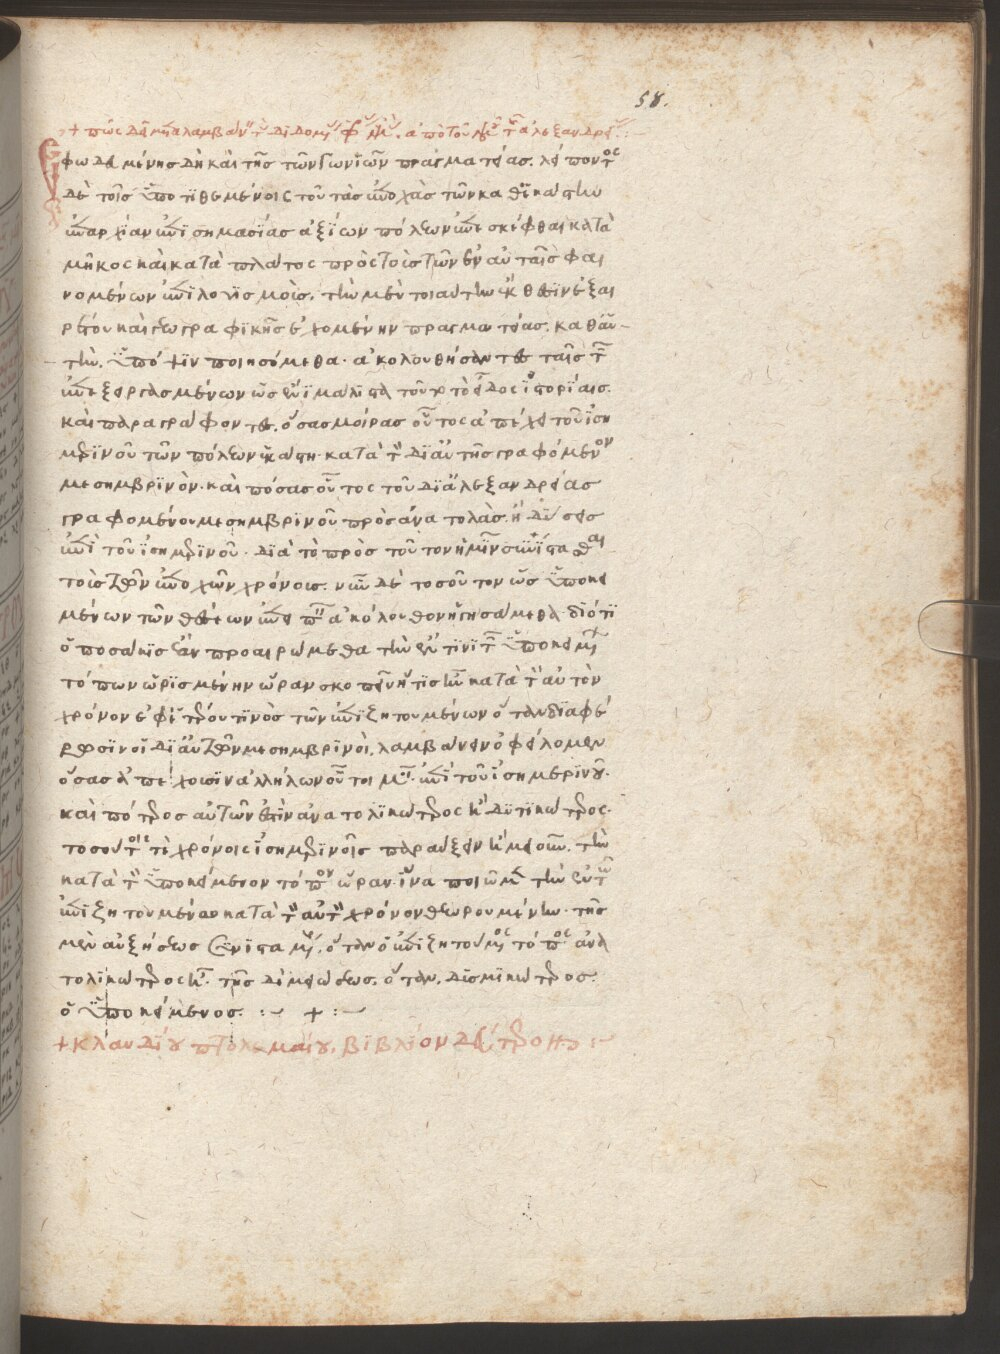 + πῶς δεῖ μεταλαμβάνειν τὴν διδομένην ὥραν ἀπὸ τοῦ τῆς ἀλεξανδρείας :
Ἐφωδευμένης δὴ καὶ τῆς τῶν γωνιῶν πραγματείας. λείποντος
δὲ τοῖς ὑποτιθεμένοις τοῦ τὰς ἐποχὰς τῶν καθ ἑκάστην
ἐπαρχίαν ἐπισημασίας ἀξίων πόλεων ἐπεσκέφθαι κατὰ
μῆκος καὶ κατὰ πλάτος πρὸς τοῖς τῶν ἐν αὐταῖς φαι
νομένων ἐπιλογισμοῖς. τὴν μὲν τοιαύτην ἔκθεσιν ἐξαι
ρέτου καὶ γεωγραφικῆς ἐχομένην πραγματείας. καθ αὑ-
τὴν. ὑπόψιν ποιησόμεθα. ἀκολουθήσαντες ταῖς τῶν
ἐπεξεργασμένων ὡς ἔνι μάλιστα τοῦτο τὸ εἶδος ἱστορίαις.
καὶ παραγράφοντες. ὅσας μοίρας οὗτος ἀπέχει τοῦ ἰση
μερινοῦ τῶν πόλεων ἑκάστη. κατὰ τὸν δι αὐτῆς γραφόμενον
μεσημβρινὸν. καὶ πόσας οὗτος τοῦ δι ἀλεξανδρείας
γραφομένου μεσημβρινοῦ πρὸς ἀνατολὰς. ἢ δύσεις
ἐπὶ τοῦ ἰσημερινοῦ. διὰ τὸ πρὸς τοῦτον ἡμῖν συνίστασθαι
τοῖς τῶν ἐποχῶν χρόνοις. νῦν δὲ τοσοῦτον ὡς ὑποκει
μένων τῶν θέσεων ἐπειπεῖν ἀκόλουθον ἡγησάμεθα. διότι
ὁποσάκις ἐὰν προαιρώμεθα τὴν ἔν τινι τῶν ὑποκειμένων
τόπων ὡρισμένην ὥραν σκοπεῖν ἥτις ἦν κατὰ τὸν αὐτὸν
χρόνον ἐφ ἑτέρου τινὸς τῶν ἐπιζητουμένων ὅταν διαφέ
ρωσιν οἱ δι αὐτῶν μεσημβρινοὶ. λαμβάνειν ὀφείλομεν
ὅσας ἀπέχουσιν ἀλλήλων οὗτοι μοίρας. ἐπὶ τοῦ ἰσημερινοῦ.
καὶ πότερος αὐτῶν ἐστὶν ἀνατολικώτερος ἢ δυτικώτερος.
τοσούτοις τὲ χρόνοις ἰσημερινοῖς παραύξειν ἢ μειοῦν. τὴν
κατὰ τὸν ὑποκείμενον τόπον ὥραν. ἵνα ποιῶμεν τὴν ἐν τῷ
ἐπιζητουμένῳ κατὰ τὸν αὐτὸν χρόνον θεωρουμένην. τῆς
μὲν αὐξήσεως γινομένης. ὅταν ὁ ἐπιζητούμενος τόπος ἀνα
τολικώτερος ᾖ. τῆς δὲ μειώσεως. ὅταν. δυσμικώτερος.
ὁ ὑποκείμενος. :~ + :~
+ κλαυδίου πτολεμαίου. βιβλίον δεύτερον :~
58.